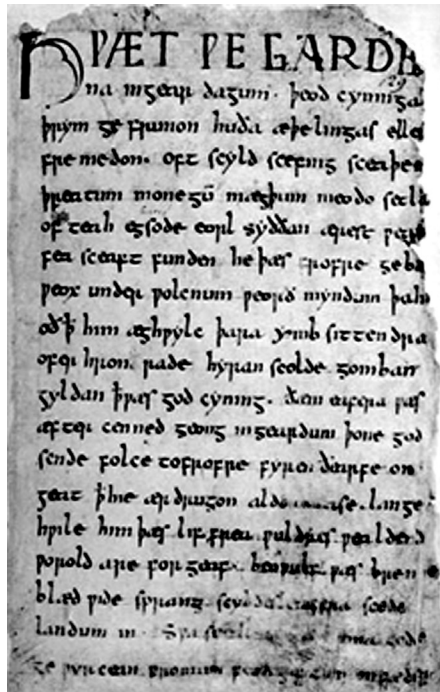 HǷÆT ǷE GARDE
na ingear dagum. þeod cyninga
þrym ge frunon huða æþelingas elle
fremedon. oft scyld scefing sceaþe
þreatum monegū mægþum meodo setla
of teah egsode eorl syððan ærest ƿearð
fea sceaft funden he þæs frofre geba
ƿeox under ƿolcnum ƿeorð myndum þah
oð þ̄ him æghƿylc þara ymb sittendra
ofer hron rade hyran scolde gomban
gyldan þ̄ ƿæs god cyning. ðæm eafera ƿæs
æfter cenned geong ingeardum þone god
sende folce tofrofre fyren ðearfe on
geat þ̄ hie ær drugon aldor ase. lange
hƿile him þæs lif frea ƿuldres ƿealdend
ƿorold are for geaf. beoƿulf ƿæs breme
blæd ƿide sprang scyldes eafera scede
landum in. sƿa
ge ƿyrcean fromum feoh giftum